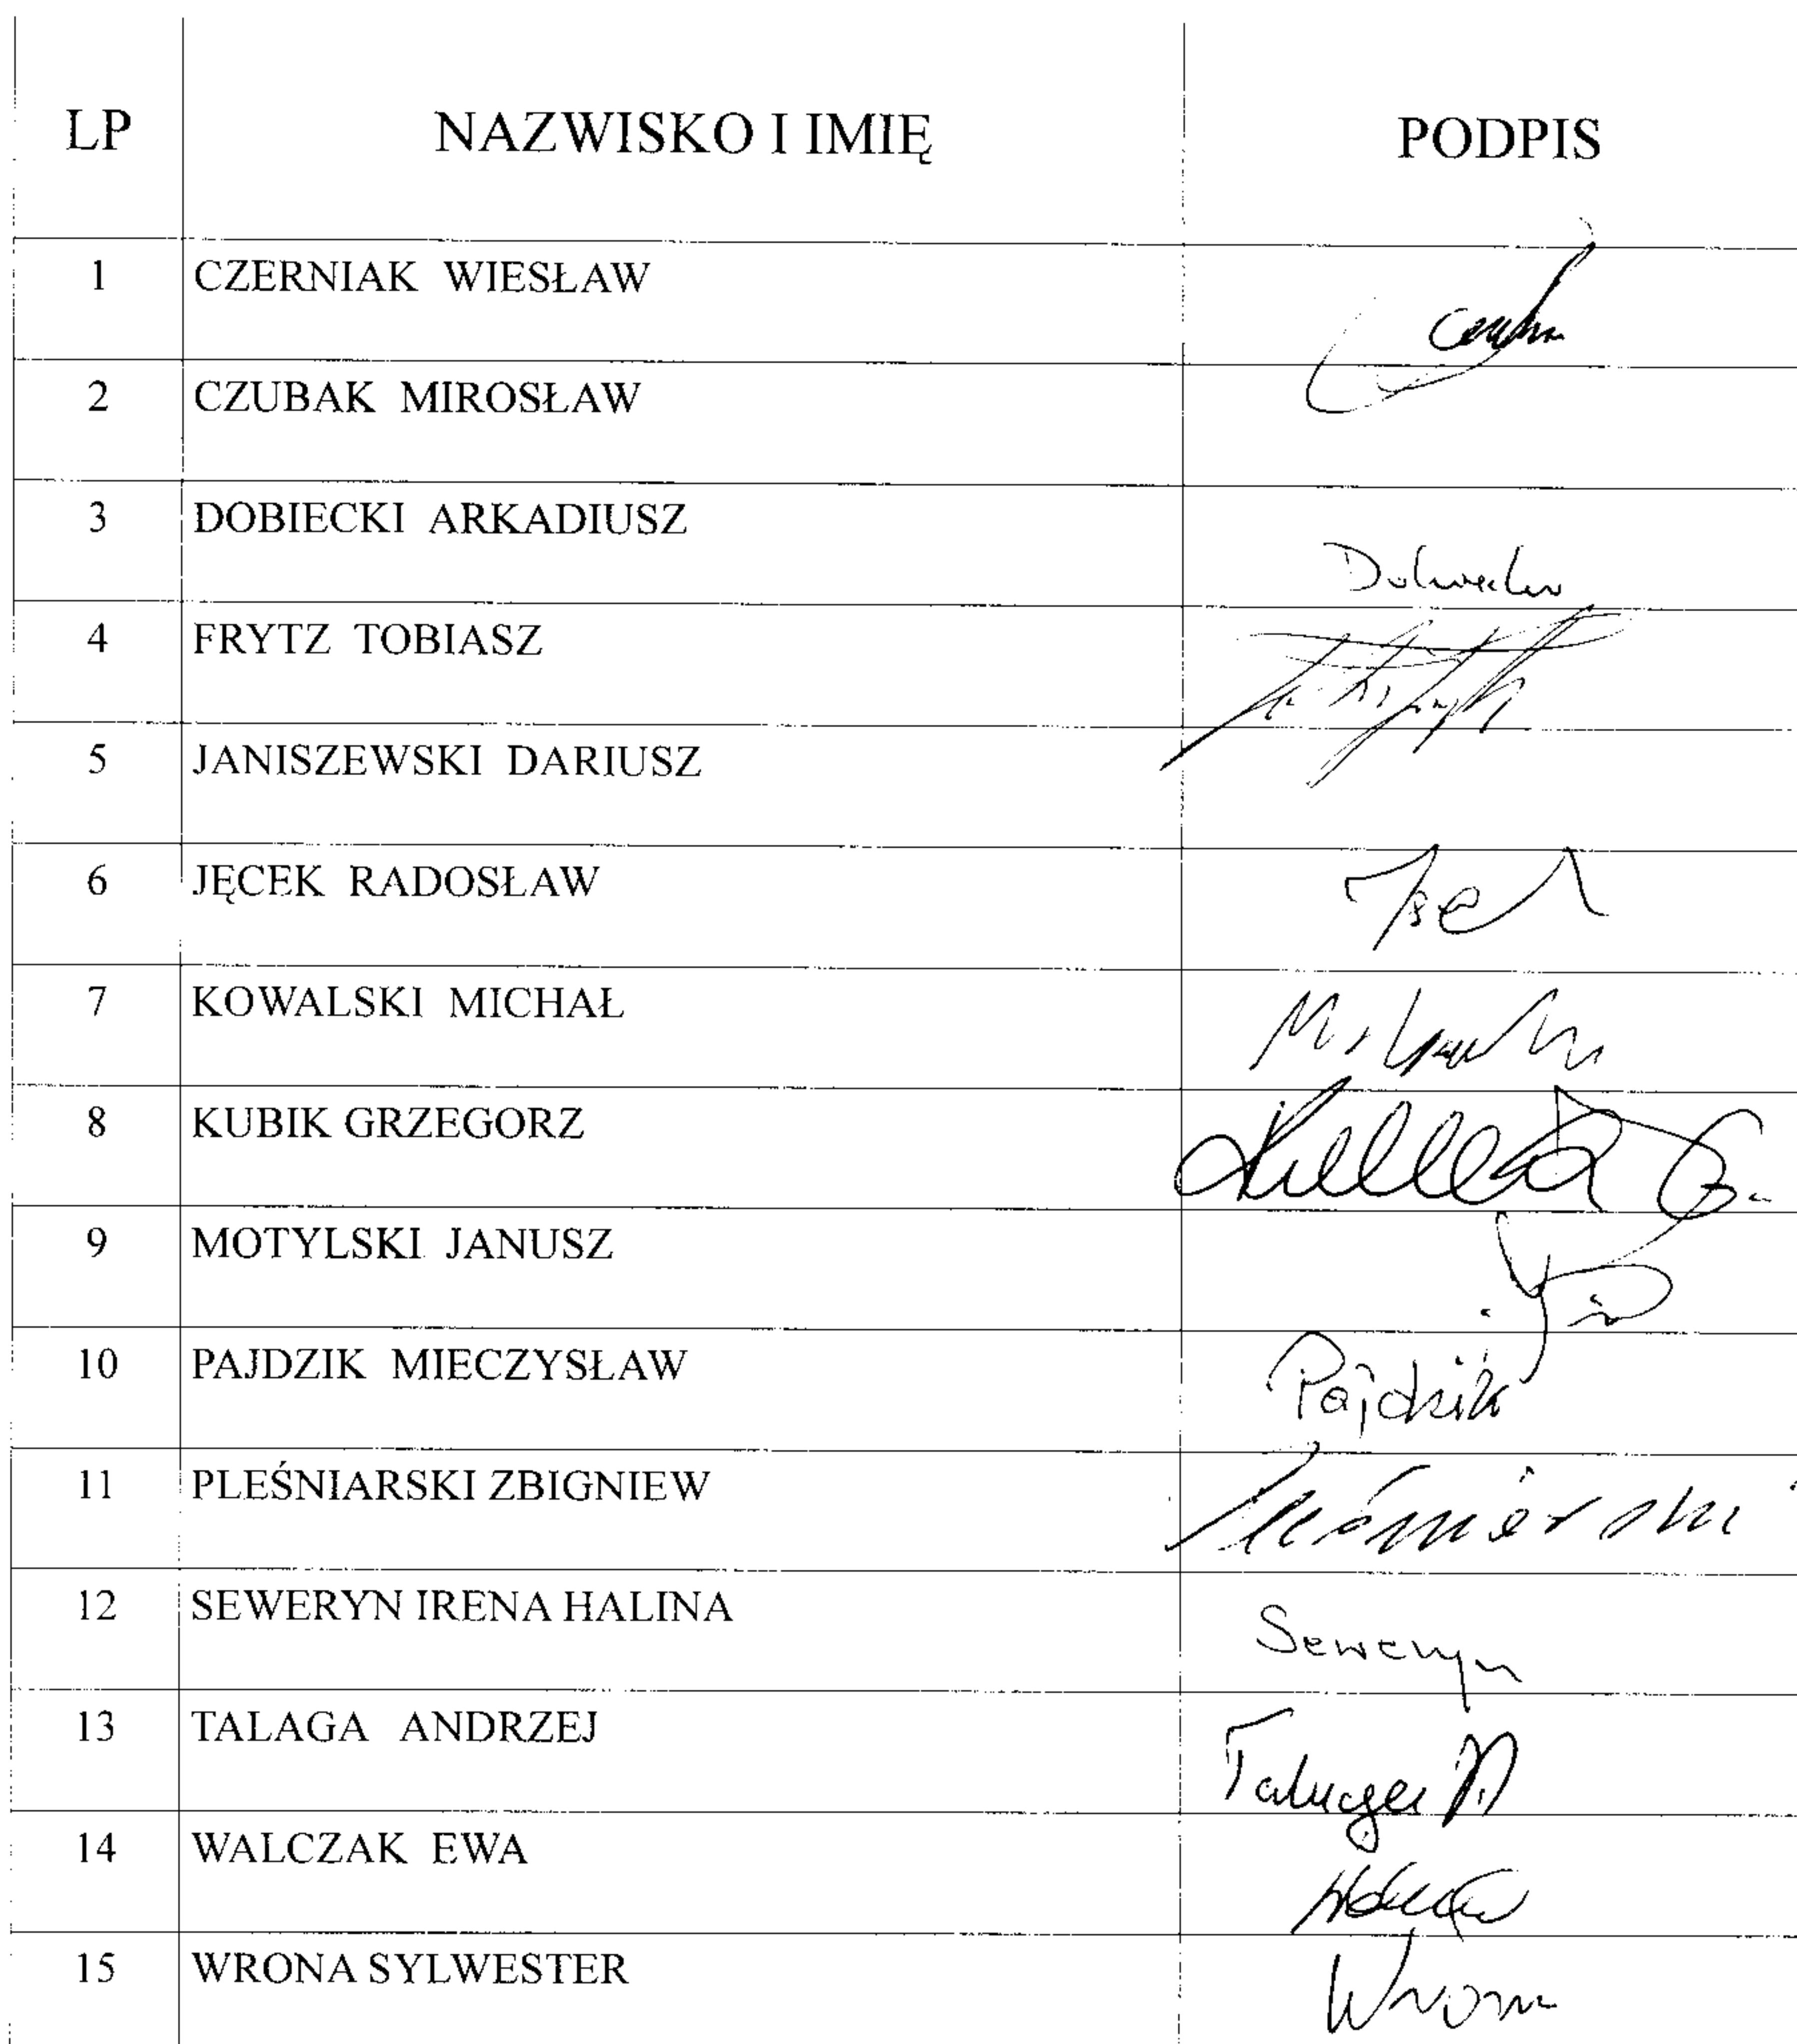 LP NAZWISKO I IMIĘ PODPIS
1 CZERNIAK WIESŁAW
2 CZUBAK MIROSŁAW
3 DOBIECKI ARKADIUSZ
4 FRYTZ TOBIASZ
5 JANISZEWSKI DARIUSZ
6 JĘCEK RADOSŁAW
7 KOWALSKI MICHAŁ
8 KUBIK GRZEGORZ
9 MOTYLSKI JANUSZ
10 PAJDZIK MIECZYSŁAW Pajdzik
11 PLEŚNIARSKI ZBIGNIEW
12 SEWERYN IRENA HALINA Seweryn
13 TALAGA ANDRZEJ Talaga A.
14 WALCZAK EWA
15 WRONA SYLWESTER Wrona